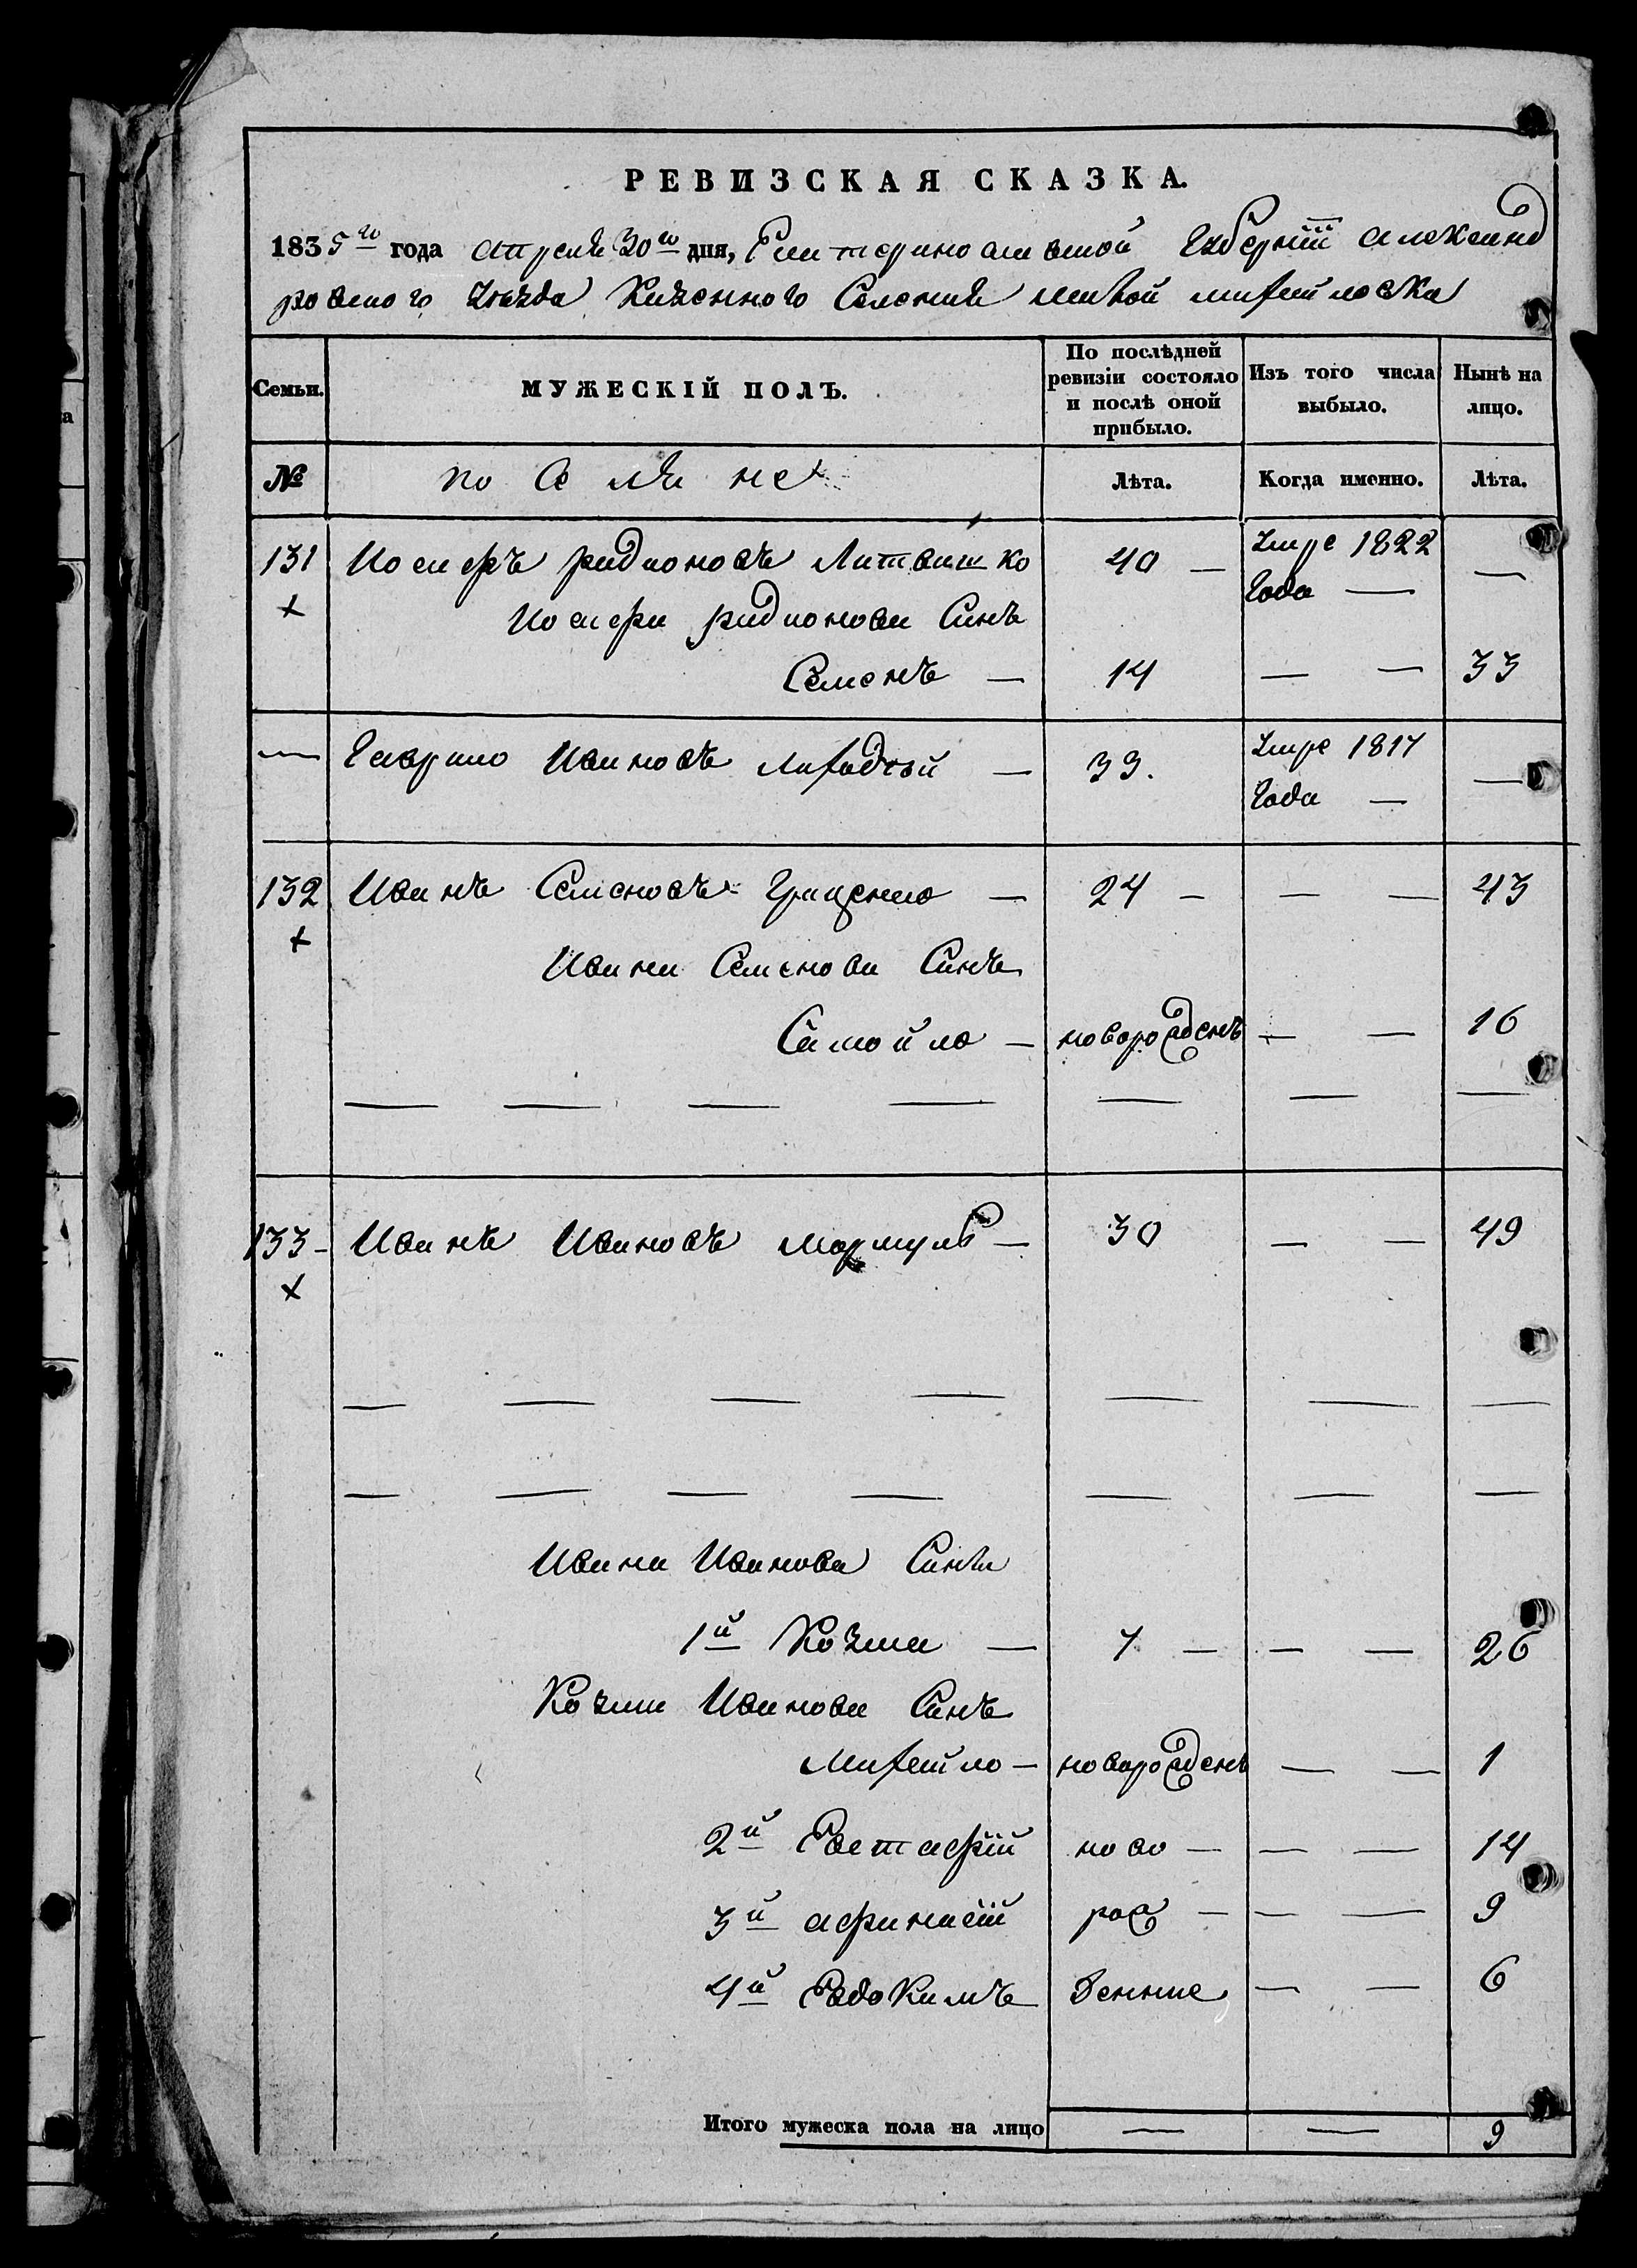 РЕВИЗСКАЯ СКАЗКА.
1835го года апреля 30го дня, Екатеринославской Губернїи александ
ровского уезда Казенного Селения малой михайловки
Семьи. МУЖЕСКІЙ ПОЛЪ. По послѣдней ревизіи состояло и послѣ оной прибыло. Изъ того числа выбыло. Нынѣ на лицо.
№ поселяне Лѣта. Когда именно. Лѣта.
131 Иосифъ радионовъ Литвинко 40 — умре 1822 Года — —
Иосифа радионова Синъ
Семенъ — 14 — — 33
— Гаврило Ивановъ Лихадѣй — 33. умре 1817 Года — —
132 Иванъ Семеновъ Гриценко — 24 — — — 43
Ивана Семенова Синъ
Самойло — новорожденъ — — 16
133 — Иванъ Ивановъ мормуль — 30 — — 49
Ивана Иванова Синя
1й Козма — 7 — — — 26
Козми Иванова Синъ
Михайло — новорожденъ — — 1
2й Евстафїй ново — — — 14
3й афанасїй рож — — — 9
4й Евдокимъ денние — — 6
Итого мужеска пола на лицо — — 9